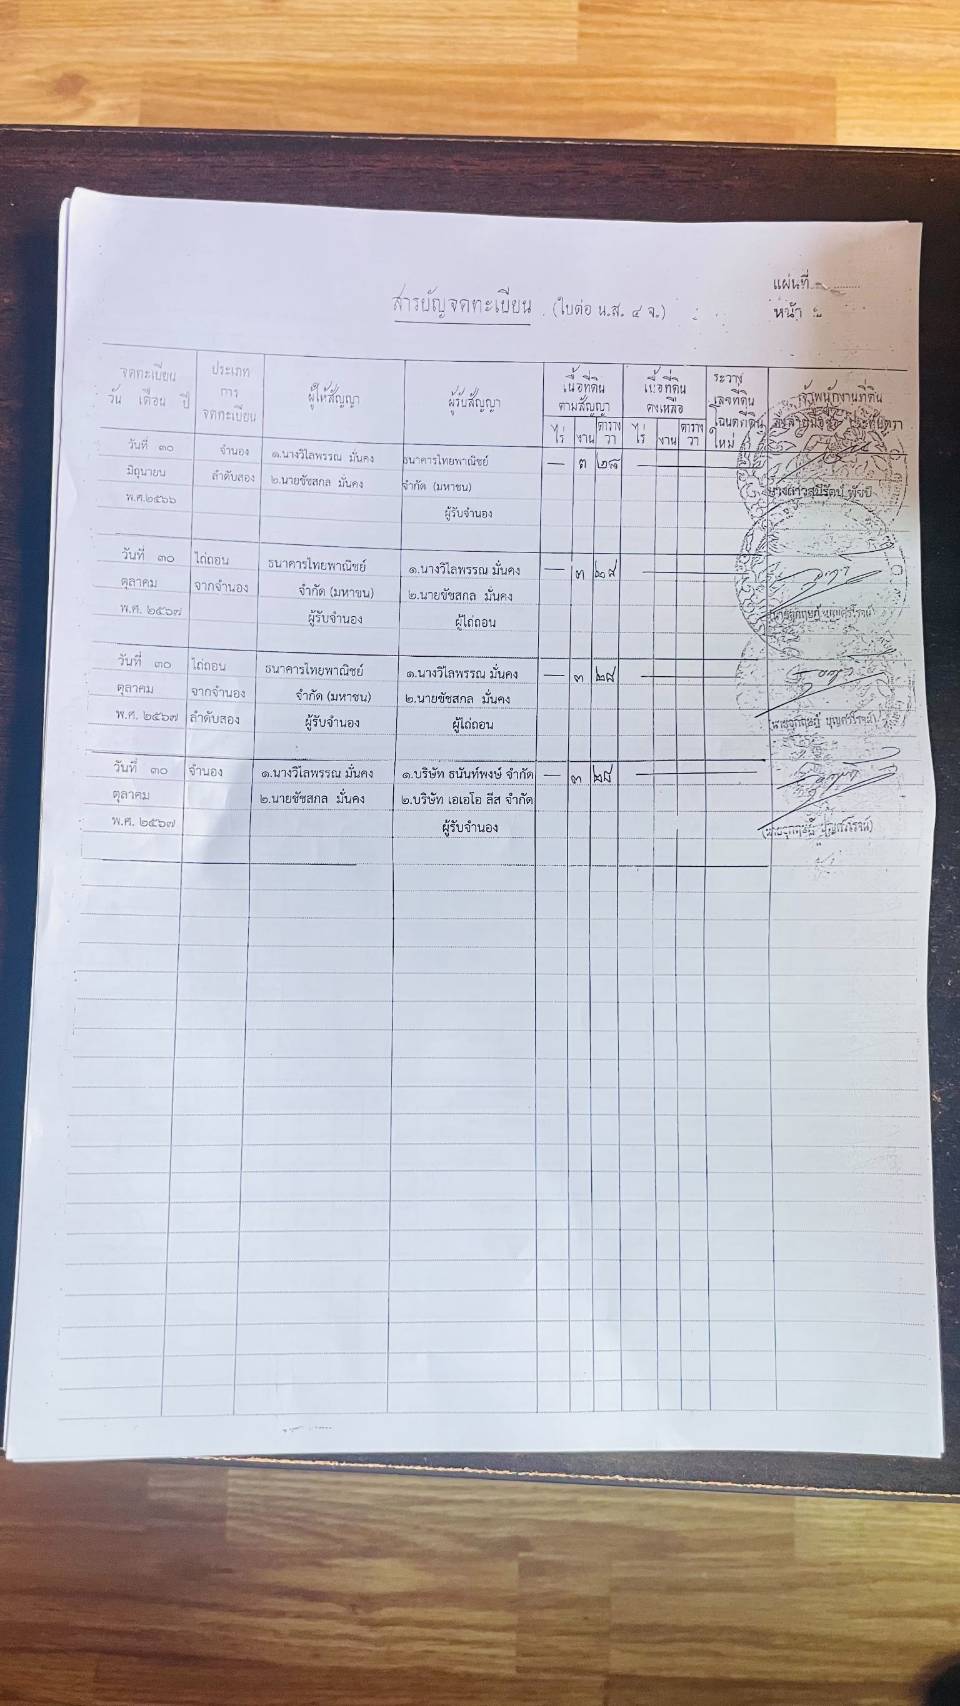 แผ่นที่
สารบัญจดทะเบียน (ใบต่อ น.ส. ๔ จ.)
หน้า
จดทะเบียน วัน เดือน ปี
ประเภท การ จดทะเบียน
ผู้ให้สัญญา
ผู้รับสัญญา
เนื้อที่ดิน ตามสัญญา
เนื้อที่ดิน คงเหลือ
ระวาง เลขที่ดิน โฉนดที่ดิน ใหม่
เจ้าพนักงานที่ดิน
ไร่ งาน ตารางวา ไร่ งาน ตารางวา
วันที่ ๓๐ จำนอง ๑.นางวิไลพรรณ มั่นคง ธนาคารไทยพาณิชย์ — ๓ ๒๘
มิถุนายน ลำดับสอง ๒.นายชัชสกล มั่นคง จำกัด (มหาชน)
พ.ศ.๒๕๖๖ ผู้รับจำนอง
วันที่ ๓๐ ไถ่ถอน ธนาคารไทยพาณิชย์ ๑.นางวิไลพรรณ มั่นคง — ๓ ๒๘
ตุลาคม จากจำนอง จำกัด (มหาชน) ๒.นายชัชสกล มั่นคง
พ.ศ. ๒๕๖๗ ผู้รับจำนอง ผู้ไถ่ถอน
วันที่ ๓๐ ไถ่ถอน ธนาคารไทยพาณิชย์ ๑.นางวิไลพรรณ มั่นคง — ๓ ๒๘
ตุลาคม จากจำนอง จำกัด (มหาชน) ๒.นายชัชสกล มั่นคง
พ.ศ. ๒๕๖๗ ลำดับสอง ผู้รับจำนอง ผู้ไถ่ถอน
วันที่ ๓๐ จำนอง ๑.นางวิไลพรรณ มั่นคง ๑.บริษัท ธนันท์พงษ์ จำกัด — ๓ ๒๘
ตุลาคม ๒.นายชัชสกล มั่นคง ๒.บริษัท เอเอโอ ลีส จำกัด
พ.ศ. ๒๕๖๗ ผู้รับจำนอง